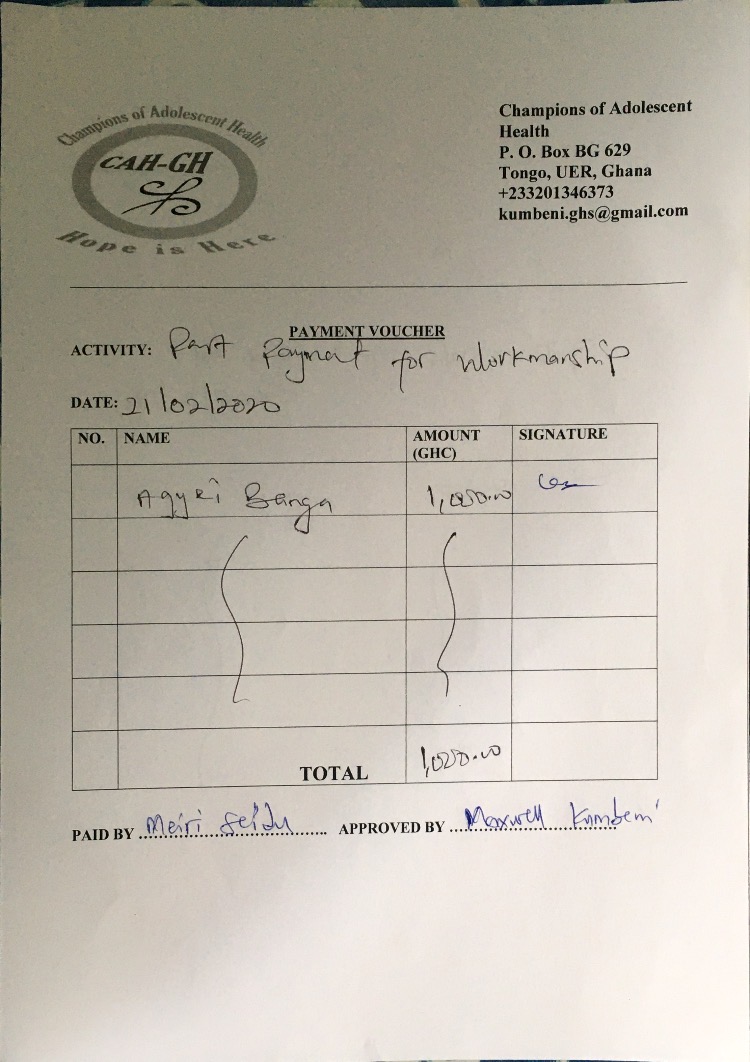 Champions of Adolescent Health
CAH-GH
Hope is Here
Champions of Adolescent
Health
P. O. Box BG 629
Tongo, UER, Ghana
+233201346373
kumbeni.ghs@gmail.com
PAYMENT VOUCHER
ACTIVITY: Part Payment for workmanship
DATE: 21/02/2020
NO. NAME AMOUNT (GHC) SIGNATURE
Agyei Banga
TOTAL
PAID BY Meiri Seidu APPROVED BY Maxwell Kumbeni